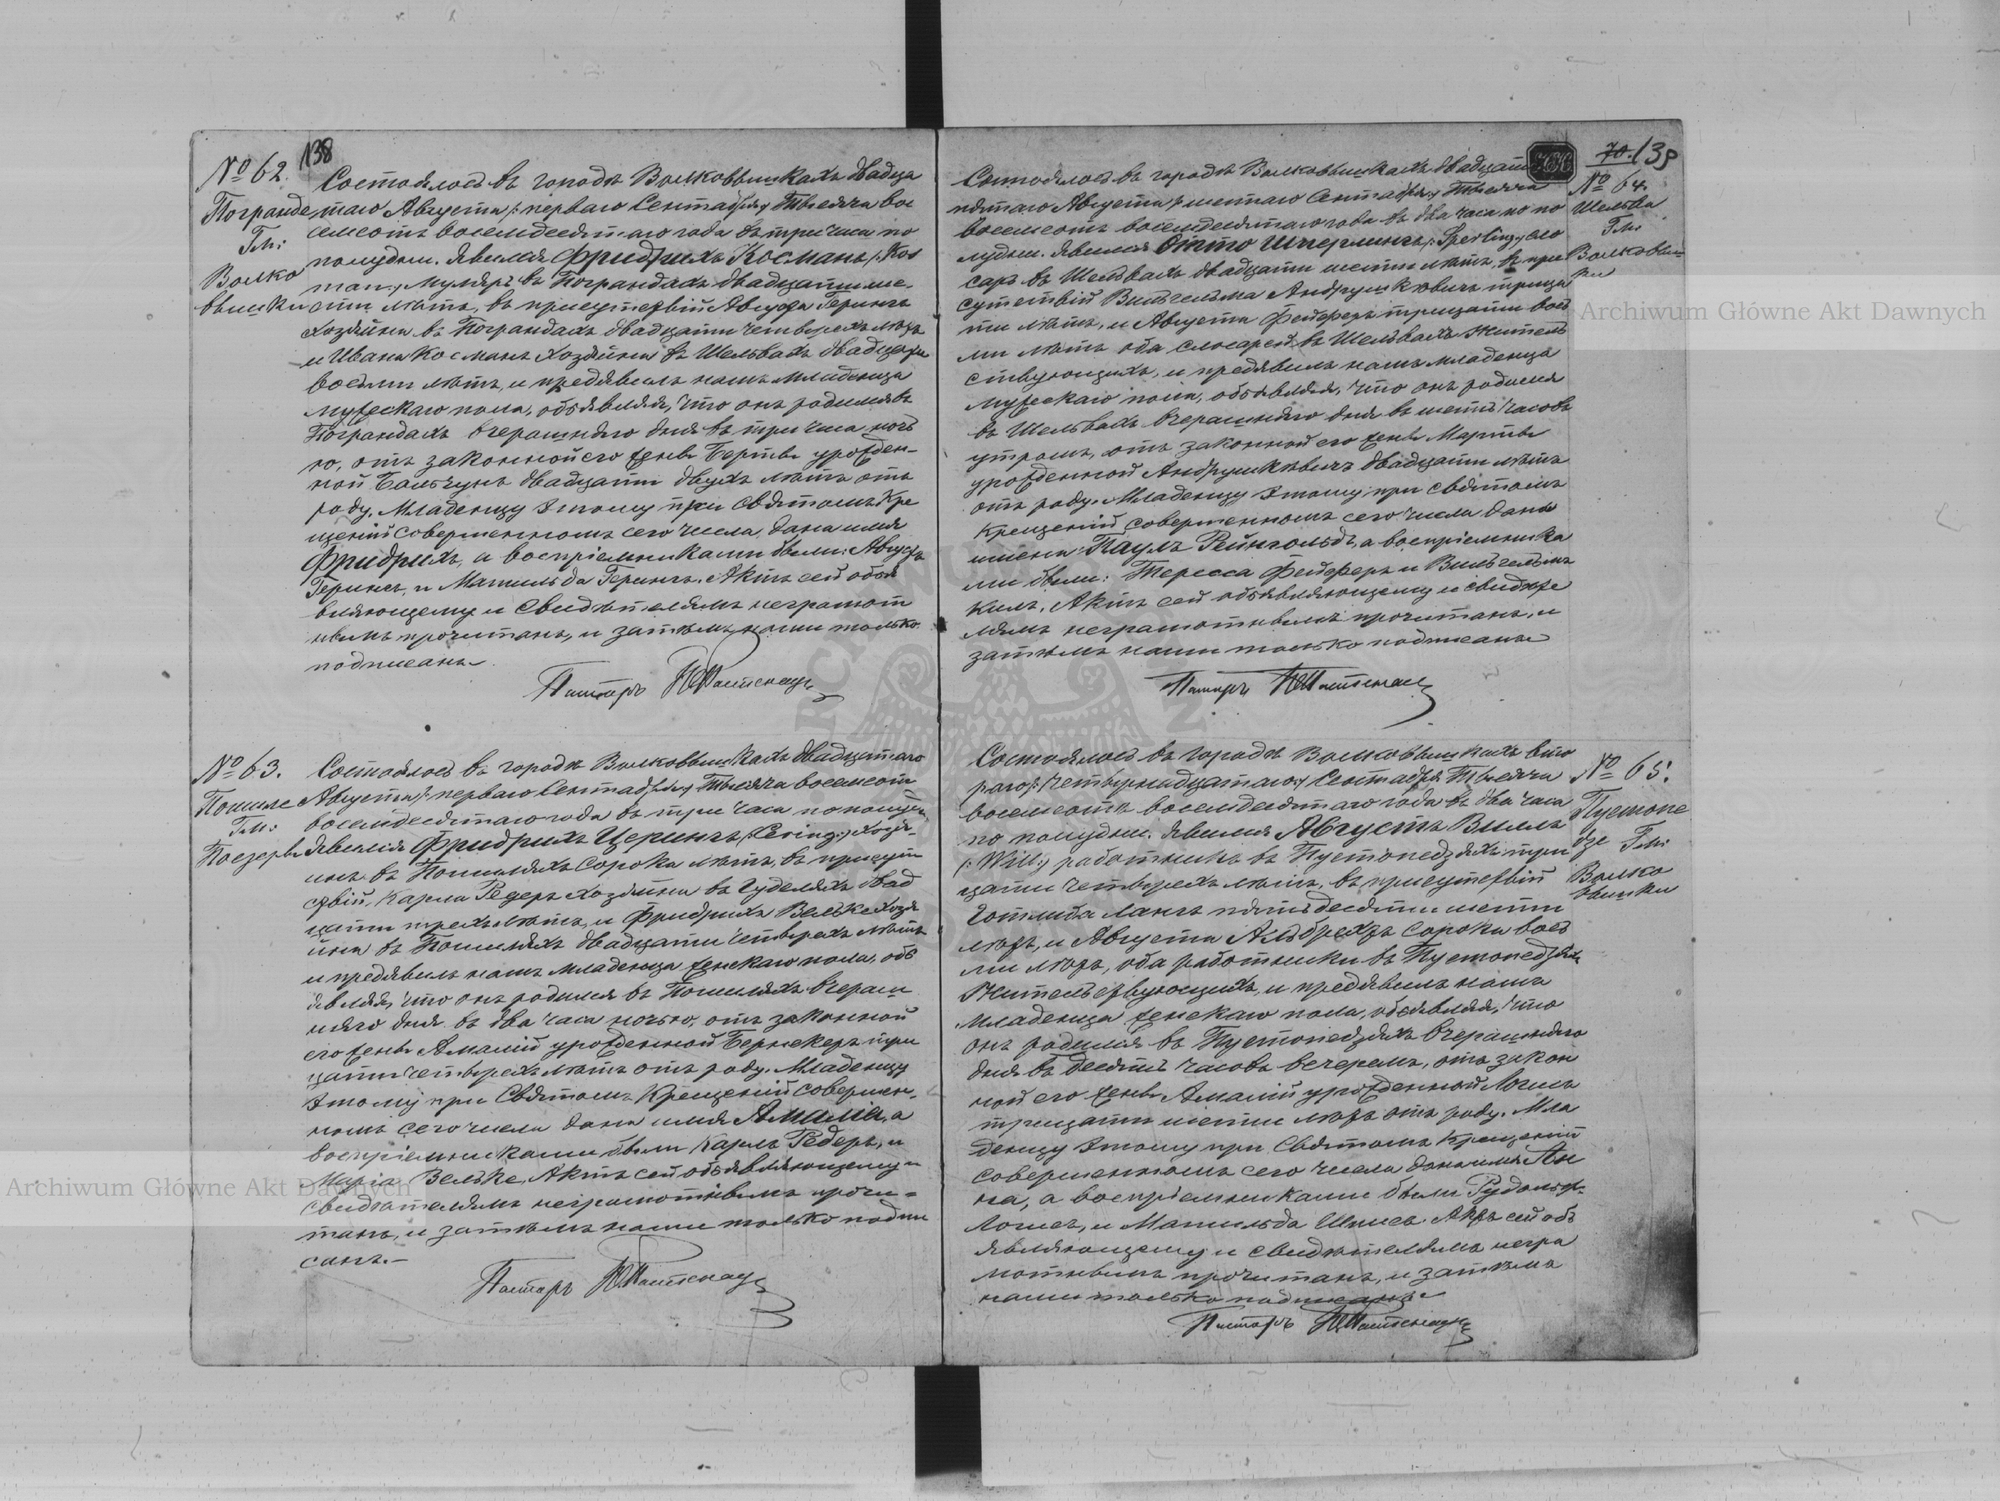 138
№ 62.
Погранде
Гм:
Волко
вышки
Состоялось въ городѣ Волковышкахъ двадца
таго Августа /: перваго Сентября :/ тысяча во
семсотъ восемдесятаго года въ три часа по
полудни. Явился Фридрихъ Косманъ /: Kos
man :/ муляръ въ Пограндахъ двадцати ше-
сти лѣтъ, въ присутствіи Августа Герингъ
хозяина въ Пограндахъ двадцати четырехъ лѣтъ
и Ивана Косманъ хозяина въ Шельвахъ двадцати
восьми лѣтъ, и предъявилъ намъ младенца
мужескаго пола, объявляя, что онъ родился въ
Пограндахъ вчерашняго дня въ три часа ночь
ю, отъ законной его жены Берты урожден-
ной Бальчунъ двадцати двухъ лѣтъ отъ
роду. Младенцу этому при Святомъ Кре
щеніи совершенномъ сего числа, дана имя
Фридрихъ, а воспріемниками были: Августъ
Герингъ, и Матильда Герингъ. Актъ сей объя
вляющему и Свидѣтелямъ неграмот
нымъ прочитанъ, и затѣмъ нами только
подписанъ.
Пасторъ
№ 63.
Пошиле
Гм:
Поезеры
Состоялось въ городѣ Волковышкахъ двадцатаго
Августа /: перваго Сентября :/ тысяча восемсотъ
восемдесятаго года въ три часа по полудни
Явился Фридрихъ Церингъ /: Cering :/ хозя-
инъ въ Пошиляхъ сорока лѣтъ, въ присут
ствіи, Карла Редеръ хозяина въ Гуделяхъ двад
цати трехъ лѣтъ, и Фридриха Вельке хозя
ина въ Пошиляхъ двадцати четырехъ лѣтъ
и предъявилъ намъ младенца женскаго пола, объ
являя, что онъ родился въ Пошиляхъ вчераш
няго дня въ два часа ночью, отъ законной
его жены Амаліи урожденной Бернекеръ три
цати четырехъ лѣтъ отъ роду. Младенцу
этому при Святомъ Крещеніи совершен-
номъ сего числа дана имя Амалія, а
воспріемниками были Карлъ Редеръ, и
Марія Вельке. Актъ сей объявляющему и
свидѣтелямъ неграмотнымъ прочи-
танъ, и затѣмъ нами только подпи
санъ.-
Пасторъ
70. 139
№ 64.
Шельва
Гм:
Волковыш-
ки
Состоялось въ городѣ Волковышкахъ двадцать
пятаго Августа /: шестаго Сентября :/ тысяча
восемсотъ восемдесятаго года въ два часа по по
лудни. Явился Отто Шперлингъ /: Sperling :/ сле
саръ въ Шельвахъ двадцати шести лѣтъ, въ при
сутствіи Вильгельма Андрушкевичъ трица
ти лѣтъ, и Августа Фейферъ трицати вось
ми лѣтъ оба слюсарей въ Шельвахъ жительст
ствующихъ, и предъявилъ намъ младенца
мужескаго пола, объявляя, что онъ родился
въ Шельвахъ вчерашняго дня въ шесть часовъ
утромъ, отъ законной его жены Марты
урожденной Андрушкѣвичъ двадцати лѣтъ
отъ роду. Младенцу этому при святомъ
Крещеніи совершенномъ сего числа даны
имена: Паулъ Рейнгольдъ, а воспріемника
ми были: Тересса Фейферъ и Вильгельмъ
Килъ. Актъ сей объявляющему и свидѣте
лямъ неграмотнымъ прочитанъ, и
затѣмъ нами только подписанъ
Пасторъ
№ 65.
Пустопе
дзе Гм:
Волко
вышки
Состоялось въ городѣ Волковышкахъ вто
раго /: четырнадцатаго :/ Сентября тысяча
восемсотъ восемдесятаго года въ два часа
по полудни. Явился Августъ Виллъ
/: Will :/ работникъ въ Пустопедзяхъ три
цати четырехъ лѣтъ, въ присутствіи
Готлиба Лангъ пятьдесяти шести
лѣтъ, и Августа Альбрехтъ сорока вось
ми лѣтъ, оба работники въ Пустопедзяхъ
жительствующихъ, и предъявилъ намъ
младенца женскаго пола, объявляя, что
онъ родился въ Пустопедзяхъ вчерашняго
дня въ десять часовъ вечеромъ, отъ закон
ной его жены Амаліи урожденной
трицати шести лѣтъ отъ роду. Мла
денцу этому при Святомъ Крещеніи
совершенномъ сего числа дана имя Ан
на, а воспріемниками были Рудольфъ
и Матильда Актъ сей объ
являющему и свидѣтелямъ негра
мотнымъ прочитанъ, и затѣмъ
нами только подписанъ.-
Пасторъ
Archiwum Główne Akt Dawnych
Archiwum Główne Akt Dawnych